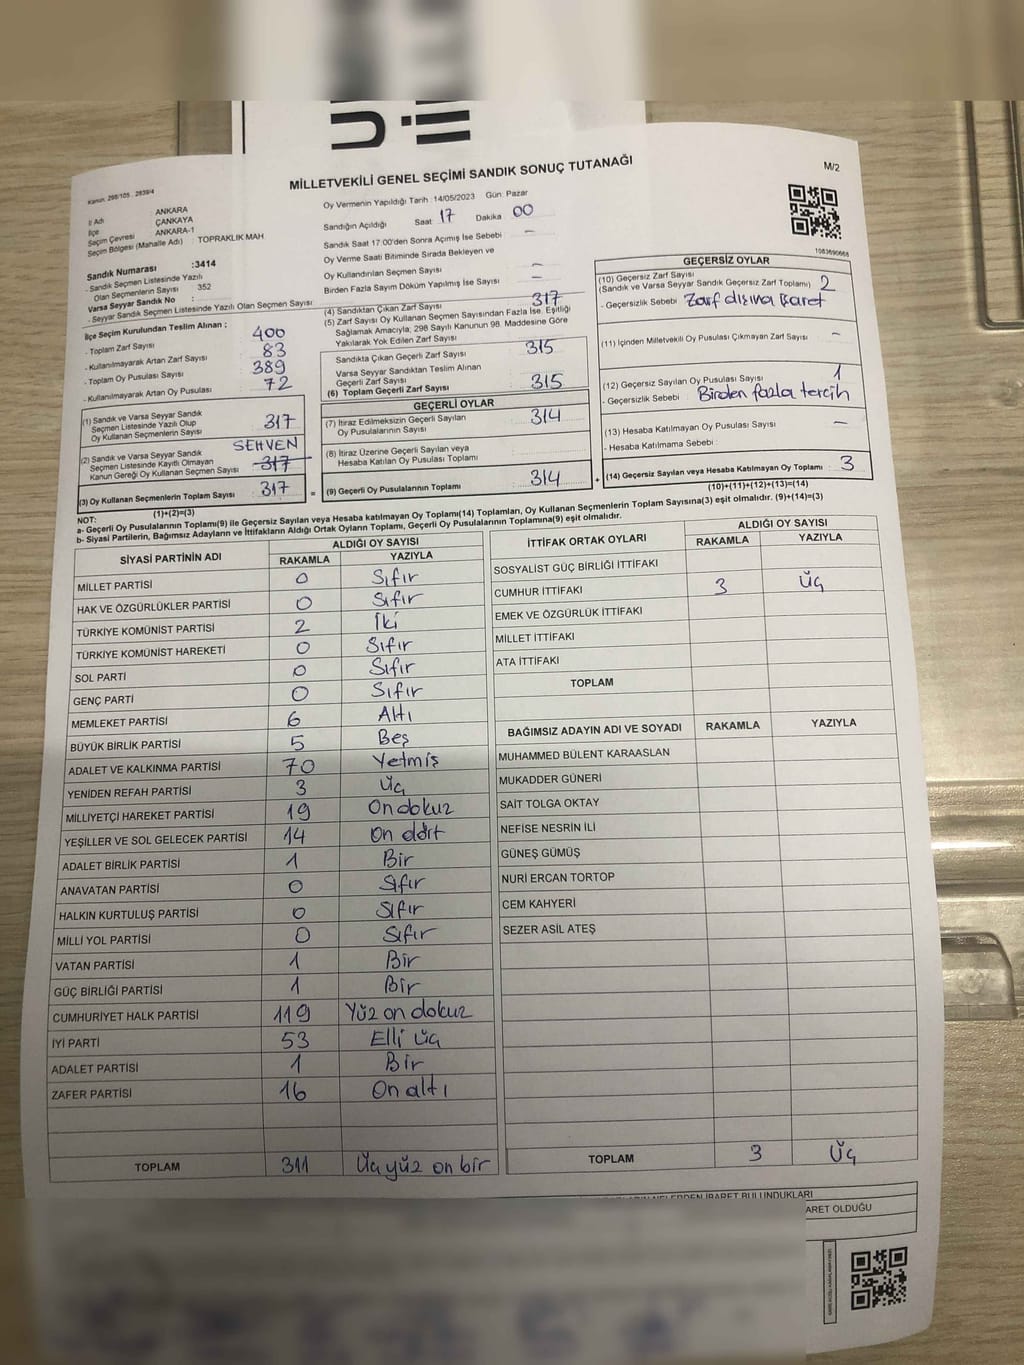 MİLLETVEKİLİ GENEL SEÇİMİ SANDIK SONUÇ TUTANAĞI
M/2
Kanun. 298/105 . 2839/4
İl Adı ANKARA
İlçe ÇANKAYA
Seçim Çevresi ANKARA-1
Seçim Bölgesi (Mahalle Adı) : TOPRAKLIK MAH
Sandık Numarası :3414
- Sandık Seçmen Listesinde Yazılı
Olan Seçmenlerin Sayısı : 352
Varsa Seyyar Sandık No :
- Seyyar Sandık Seçmen Listesinde Yazılı Olan Seçmen Sayısı
İlçe Seçim Kurulundan Teslim Alınan :
- Toplam Zarf Sayısı 400
- Kullanılmayarak Artan Zarf Sayısı 83
- Toplam Oy Pusulası Sayısı 389
- Kullanılmayarak Artan Oy Pusulası 72
(1) Sandık ve Varsa Seyyar Sandık
Seçmen Listesinde Yazılı Olup
Oy Kullanan Seçmenlerin Sayısı 317
SEHVEN
(2) Sandık ve Varsa Seyyar Sandık
Seçmen Listesinde Kayıtlı Olmayan
Kanun Gereği Oy Kullanan Seçmen Sayısı 317
(3) Oy Kullanan Seçmenlerin Toplam Sayısı 317
(1)+(2)=(3)
Oy Vermenin Yapıldığı Tarih : 14/05/2023 Gün: Pazar
Sandığın Açıldığı Saat 17 Dakika 00
Sandık Saat 17:00'den Sonra Açımış İse Sebebi –
Oy Verme Saati Bitiminde Sırada Bekleyen ve
Oy Kullandırılan Seçmen Sayısı –
Birden Fazla Sayım Döküm Yapılmış İse Sayısı –
(4) Sandıktan Çıkan Zarf Sayısı 317
(5) Zarf Sayısı Oy Kullanan Seçmen Sayısından Fazla İse, Eşitliği
Sağlamak Amacıyla; 298 Sayılı Kanunun 98. Maddesine Göre
Yakılarak Yok Edilen Zarf Sayısı
Sandıkta Çıkan Geçerli Zarf Sayısı 315
Varsa Seyyar Sandıktan Teslim Alınan
Geçerli Zarf Sayısı
(6) Toplam Geçerli Zarf Sayısı 315
GEÇERLİ OYLAR
(7) İtiraz Edilmeksizin Geçerli Sayılan
Oy Pusulalarının Sayısı 314
(8) İtiraz Üzerine Geçerli Sayılan veya
Hesaba Katılan Oy Pusulası Toplamı
= (9) Geçerli Oy Pusulalarının Toplamı 314 +
1083690668
GEÇERSİZ OYLAR
(10) Geçersiz Zarf Sayısı
(Sandık ve Varsa Seyyar Sandık Geçersiz Zarf Toplamı) 2
- Geçersizlik Sebebi Zarf dışına işaret
(11) İçinden Milletvekili Oy Pusulası Çıkmayan Zarf Sayısı –
(12) Geçersiz Sayılan Oy Pusulası Sayısı 1
- Geçersizlik Sebebi : Birden fazla tercih
(13) Hesaba Katılmayan Oy Pusulası Sayısı –
- Hesaba Katılmama Sebebi :
(14) Geçersiz Sayılan veya Hesaba Katılmayan Oy Toplamı : 3
(10)+(11)+(12)+(13)=(14)
NOT:
a- Geçerli Oy Pusulalarının Toplamı(9) ile Geçersiz Sayılan veya Hesaba katılmayan Oy Toplamı(14) Toplamları, Oy Kullanan Seçmenlerin Toplam Sayısına(3) eşit olmalıdır. (9)+(14)=(3)
b- Siyasi Partilerin, Bağımsız Adayların ve İttifakların Aldığı Ortak Oyların Toplamı, Geçerli Oy Pusulalarının Toplamına(9) eşit olmalıdır.
SİYASİ PARTİNİN ADI ALDIĞI OY SAYISI
RAKAMLA YAZIYLA
MİLLET PARTİSİ 0 Sıfır
HAK VE ÖZGÜRLÜKLER PARTİSİ 0 Sıfır
TÜRKİYE KOMÜNİST PARTİSİ 2 İki
TÜRKİYE KOMÜNİST HAREKETİ 0 Sıfır
SOL PARTİ 0 Sıfır
GENÇ PARTİ 0 Sıfır
MEMLEKET PARTİSİ 6 Altı
BÜYÜK BİRLİK PARTİSİ 5 Beş
ADALET VE KALKINMA PARTİSİ 70 Yetmiş
YENİDEN REFAH PARTİSİ 3 Üç
MİLLİYETÇİ HAREKET PARTİSİ 19 On dokuz
YEŞİLLER VE SOL GELECEK PARTİSİ 14 On dört
ADALET BİRLİK PARTİSİ 1 Bir
ANAVATAN PARTİSİ 0 Sıfır
HALKIN KURTULUŞ PARTİSİ 0 Sıfır
MİLLİ YOL PARTİSİ 0 Sıfır
VATAN PARTİSİ 1 Bir
GÜÇ BİRLİĞİ PARTİSİ 1 Bir
CUMHURİYET HALK PARTİSİ 119 Yüz on dokuz
İYİ PARTİ 53 Elli üç
ADALET PARTİSİ 1 Bir
ZAFER PARTİSİ 16 On altı
TOPLAM 311 Üç yüz on bir
İTTİFAK ORTAK OYLARI ALDIĞI OY SAYISI
RAKAMLA YAZIYLA
SOSYALİST GÜÇ BİRLİĞİ İTTİFAKI
CUMHUR İTTİFAKI 3 Üç
EMEK VE ÖZGÜRLÜK İTTİFAKI
MİLLET İTTİFAKI
ATA İTTİFAKI
TOPLAM
BAĞIMSIZ ADAYIN ADI VE SOYADI RAKAMLA YAZIYLA
MUHAMMED BÜLENT KARAASLAN
MUKADDER GÜNERİ
SAİT TOLGA OKTAY
NEFİSE NESRİN İLİ
GÜNEŞ GÜMÜŞ
NURİ ERCAN TORTOP
CEM KAHYERİ
SEZER ASİL ATEŞ
TOPLAM 3 Üç
İBARET BULUNDUKLARI
ARET OLDUĞU